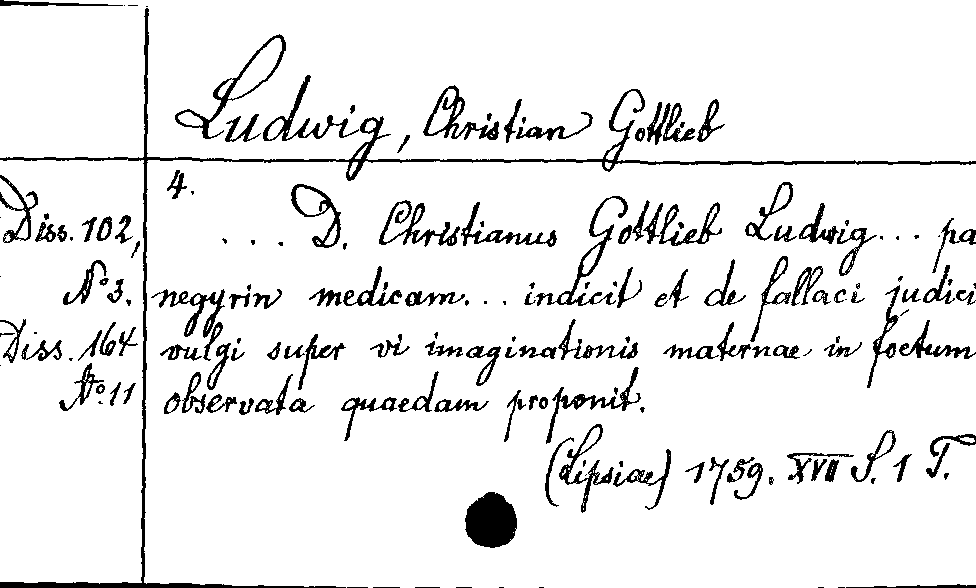 Ludwig, Christian Gottlieb
4.
Diss. 102,
No 3.
Diss. 164
No. 11
... D. Christianus Gottlieb Ludwig ... pa
negyrin medicam ... indicit et de fallaci judici
vulgi super vi imaginationis maternae in foetum
observata quaedam proponit.
(Lipsiae) 1759. XVII S. 1 T.